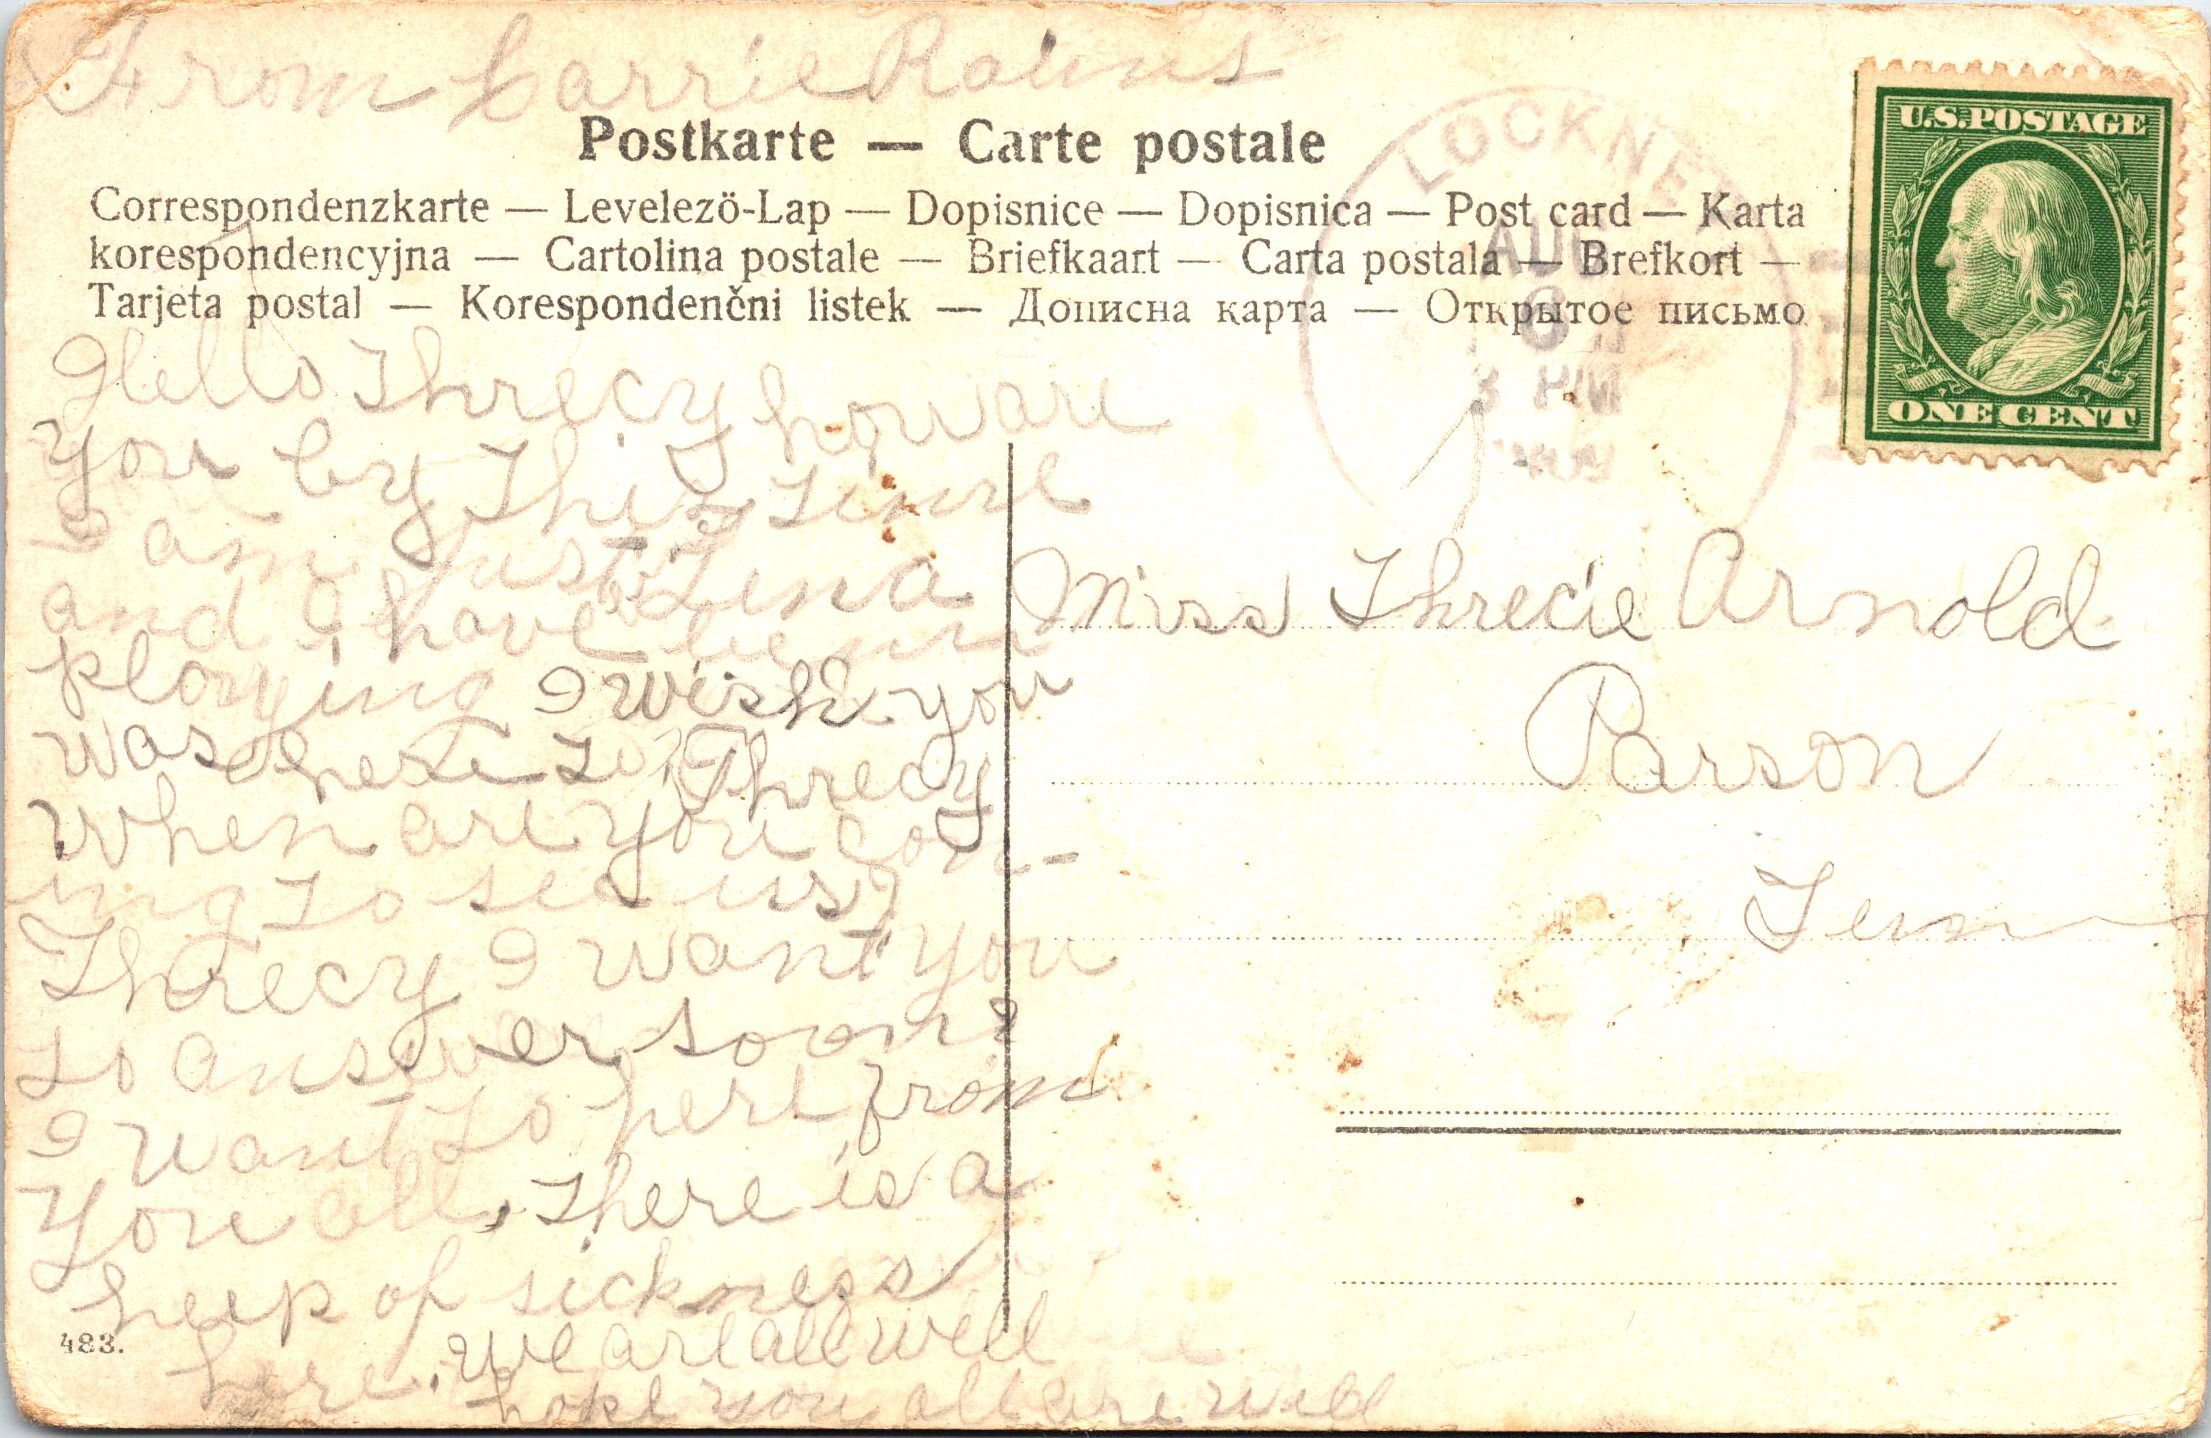 From Carrie Rains
Postkarte — Carte postale
Correspondenzkarte — Levelező-Lap — Dopisnice — Dopisnica — Post card — Karta
korespondencyjna — Cartolina postale — Briefkaart — Carta postala — Brefkort —
Tarjeta postal — Korespondenčni listek — Дописна карта — Открытое письмо
LOCKNE
AUG
6
U.S. POSTAGE
ONE CENT
Hello Threcy how are
you by this time
I am just
and I have
playing I wish you
was here to Threcy
When are you com-
ing to see us?
Threcy I want you
to answer soon
I want to here from
you all, there is a
heep of sickness
here. We are all well
hope you all are well
483.
Miss Threcie Arnold
Parson
Tenn